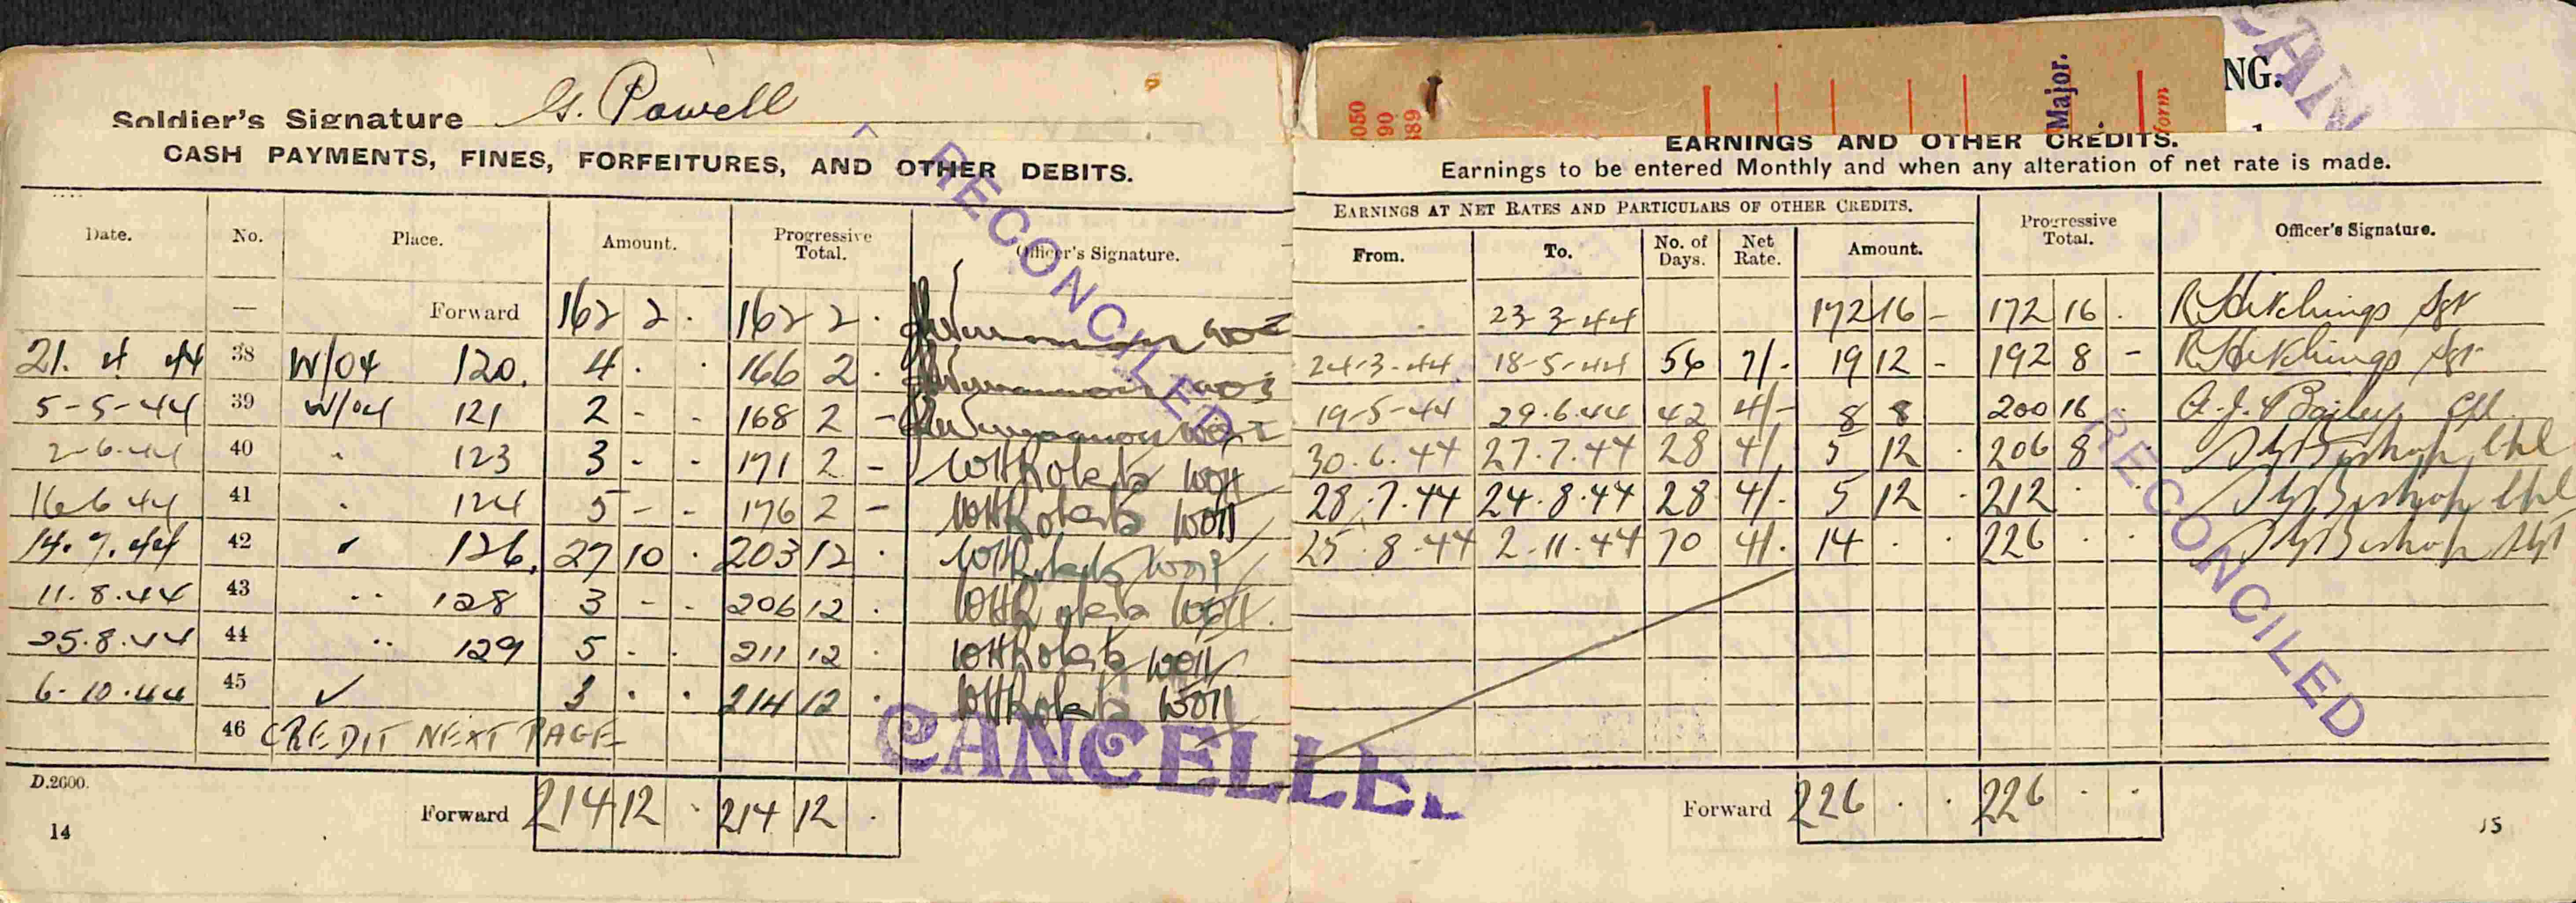 Soldier's Signature G. Powell
CASH PAYMENTS, FINES, FORFEITURES, AND OTHER DEBITS.
Date. No. Place. Amount. Progressive Total. Officer's Signature.
— Forward 162 2 . 162 2 .
21. 4 44 38 W/04 120. 4 . . 166 2 .
5-5-44 39 W/04 121 2 - - 168 2 -
2-6-44 40 " 123 3 - - 171 2 - WHRoberts WOII
16 6 44 41 " 124 5 - - 176 2 - WHRoberts WOII
14.7.44 42 " 126. 27 10 . 203 12 . WHRoberts WOII
11.8.44 43 " 128 3 - - 206 12 . WHRoberts WOII
25.8.44 44 " 129 5 - . 211 12 . WHRoberts WOII
6-10-44 45 ✓ 3 . . 214 12 . WHRoberts WOII
46 CREDIT NEXT PAGE
D.2600.
Forward 214 12 . 214 12 .
14
RECONCILED
CANCELLE
050
90
389
Major.
form
NG.
CAN
EARNINGS AND OTHER CREDITS.
Earnings to be entered Monthly and when any alteration of net rate is made.
EARNINGS AT NET RATES AND PARTICULARS OF OTHER CREDITS. Progressive Total. Officer's Signature.
From. To. No. of Days. Net Rate. Amount.
23 3 44 172 16 - 172 16 . R Hitchings Sgt
24-3-44 18-5-44 56 7/- 19 12 - 192 8 - R Hitchings Sgt
19-5-44 29.6.44 42 4/- 8 8 200 16 . A.J. Bailey Cpl
30.6.44 27.7.44 28 4/ 5 12 . 206 8 Bishop Cpl
28.7.44 24.8.44 28 4/. 5 12 . 212 . . Bishop Cpl
25.8.44 2.11.44 70 4/. 14 . . 226 . . Bishop Sgt
Forward 226 . . 226 . .
15
RECONCILED